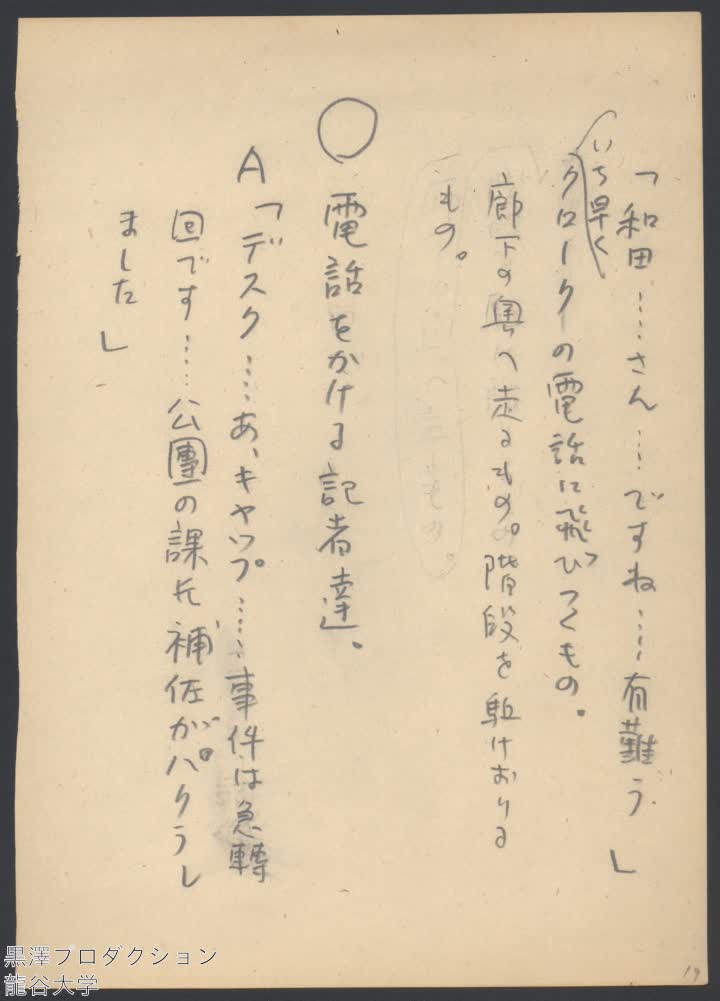 「和田……さん……ですね……有難う」
いち早く
クロークの電話に飛びつくもの。
廊下の奥へ走るもの。階段を駈けおりる
もの。
◯ 電話をかける記者達。
A「デスク……あ、キャップ……事件は急轉
回です……公團の課長補佐がパクられ
ました」
19
黒澤プロダクション
龍谷大学